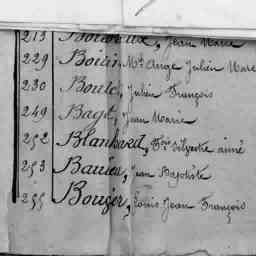 213 Boiteaux, Jean Marie
229 Boisis, Me Ange Julien Marc
230 Boulé, Julien François
249 Baget, Jean Marie
252 Blanchard, Fois Silvestre ainé
253 Bauier, Jean Baptiste
255 Bouzer, Louis Jean François